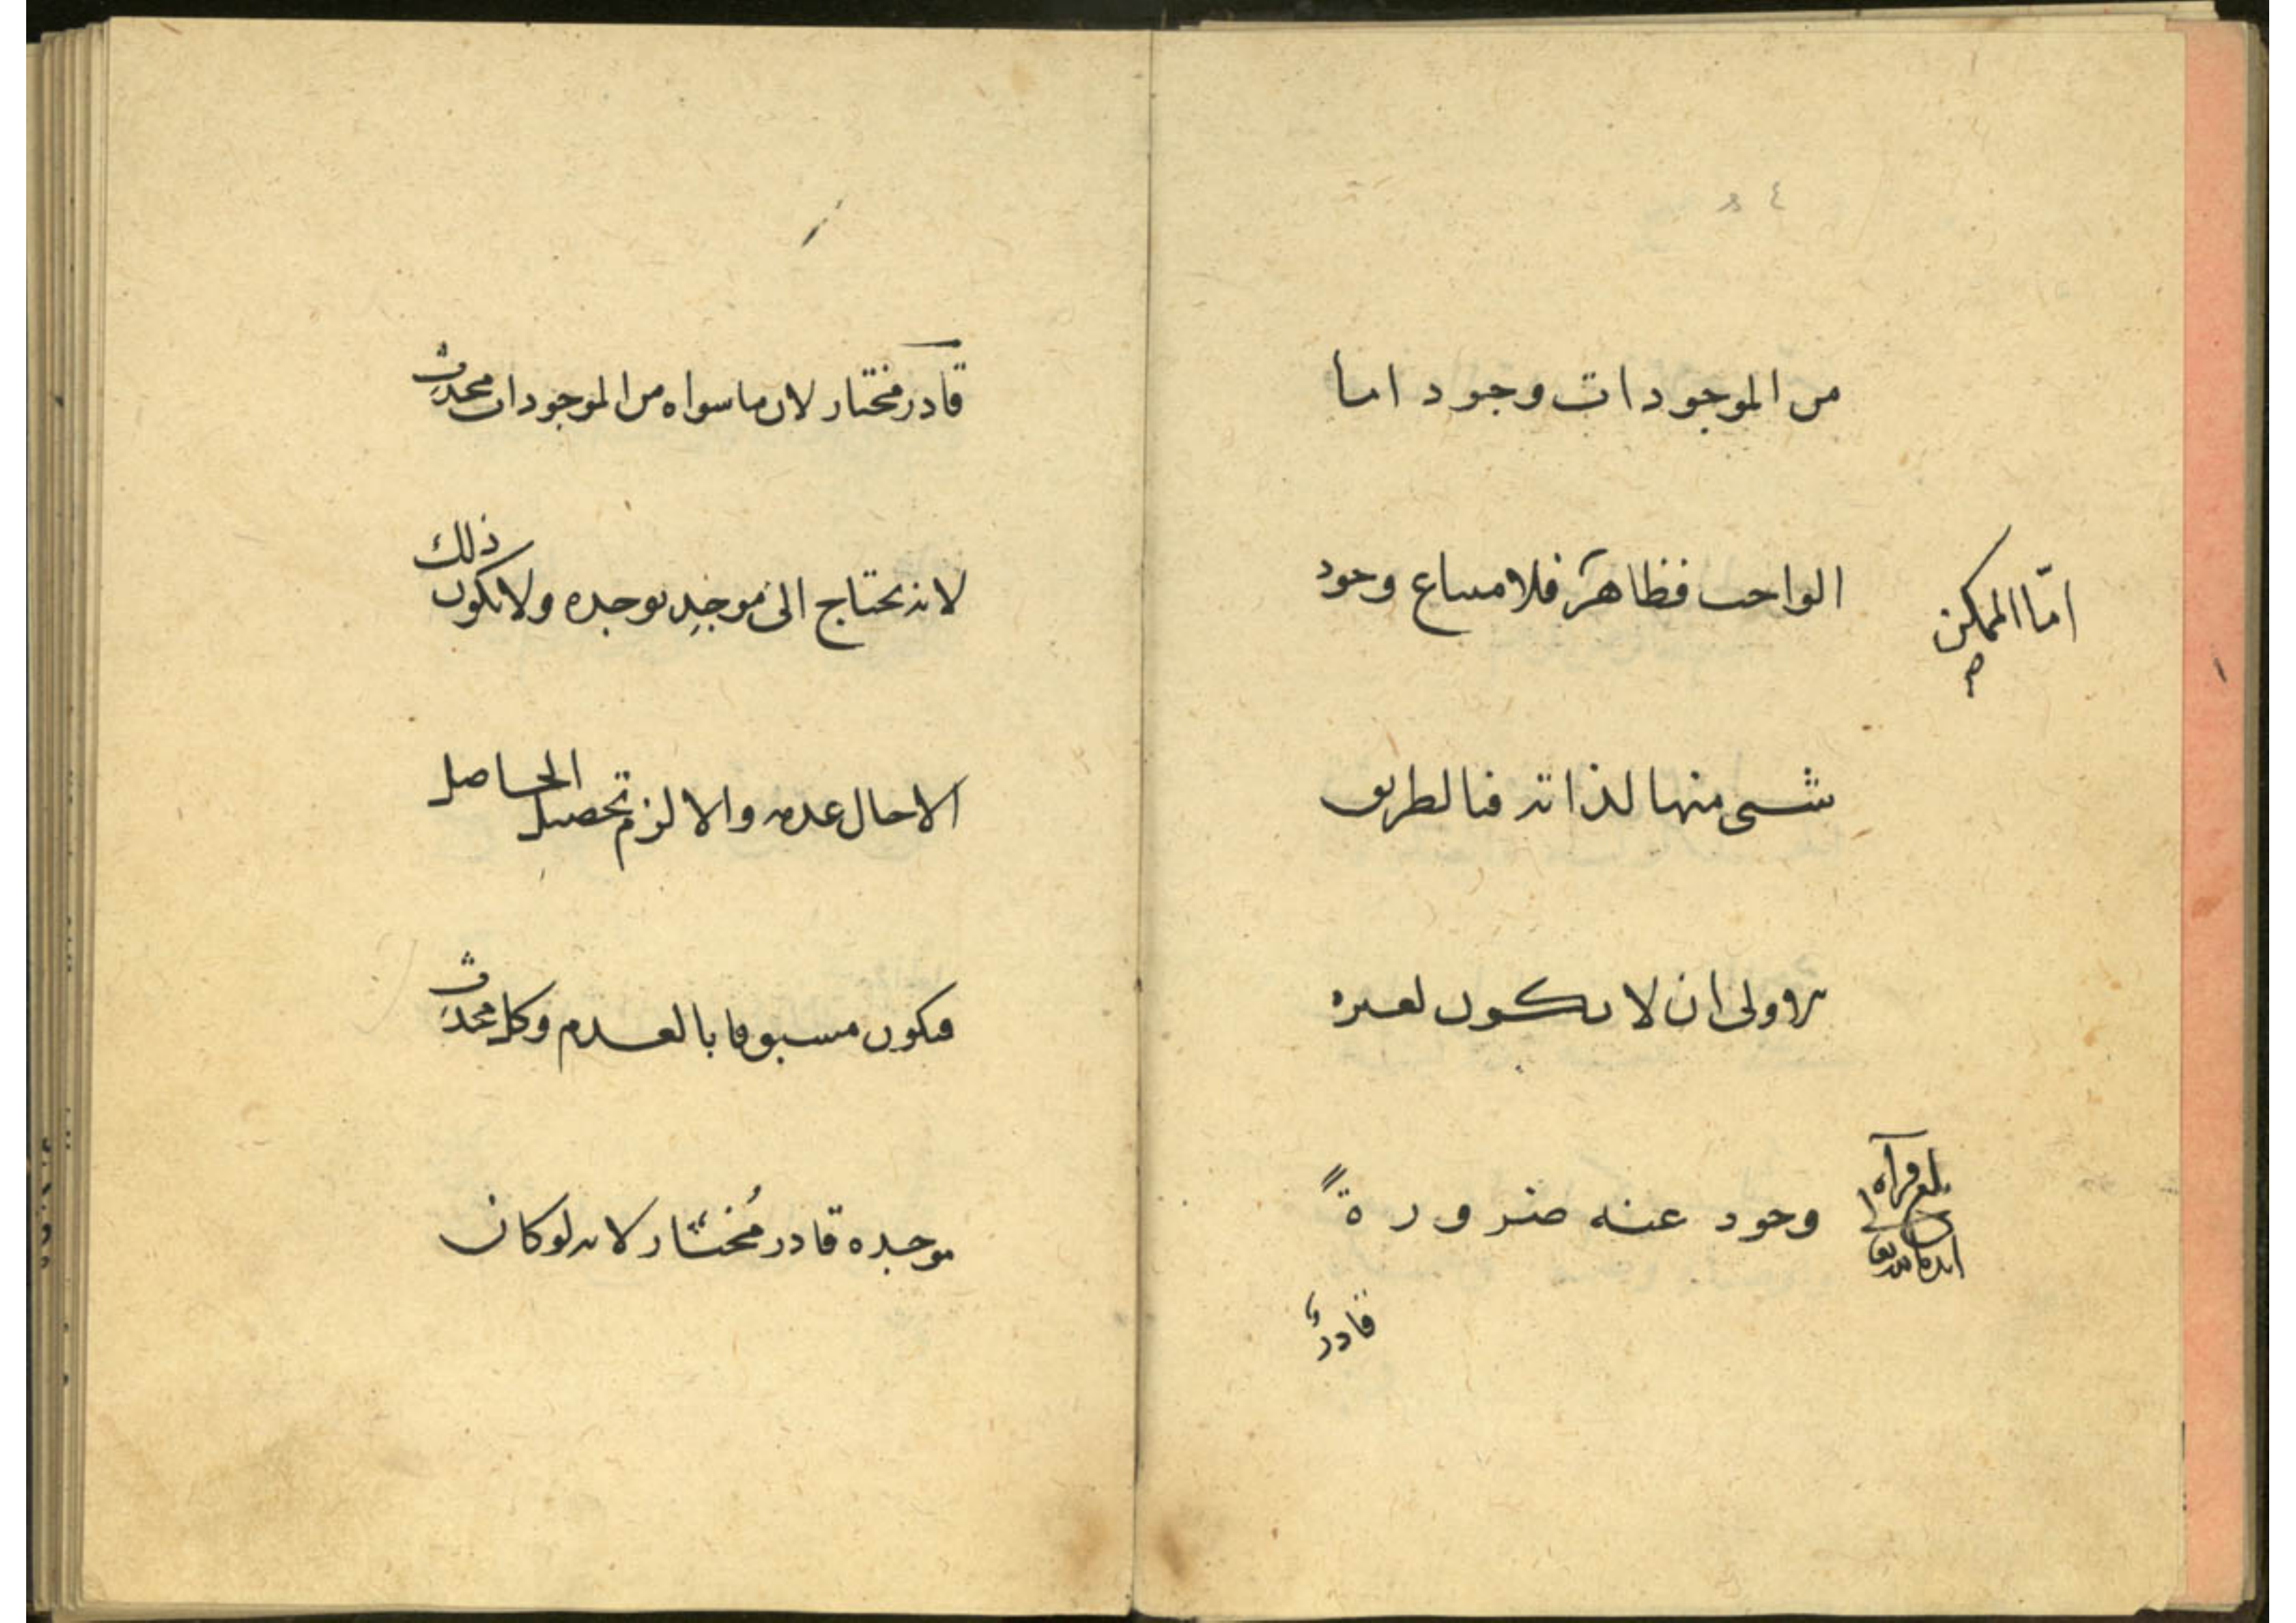 من الموجودات وجود اما
الواجب فظاهر فلامساع وجود
اما الممكن
شىء منها لذاته فبالطريق
الاولى ان لا يكون لغيره
وجود عنه ضرورةً
بلغ قرآه
قادرٌ
قادر مختار لان ما سواه من الموجودات محدث
لانه يحتاج الى موجِد يوجده ولا يكون ذلك
الا حال عدمه والا لزم تحصيل الحاصل
فيكون مسبوقا بالعدم وكل محدث
موجده قادر مُختار لانه لو كان